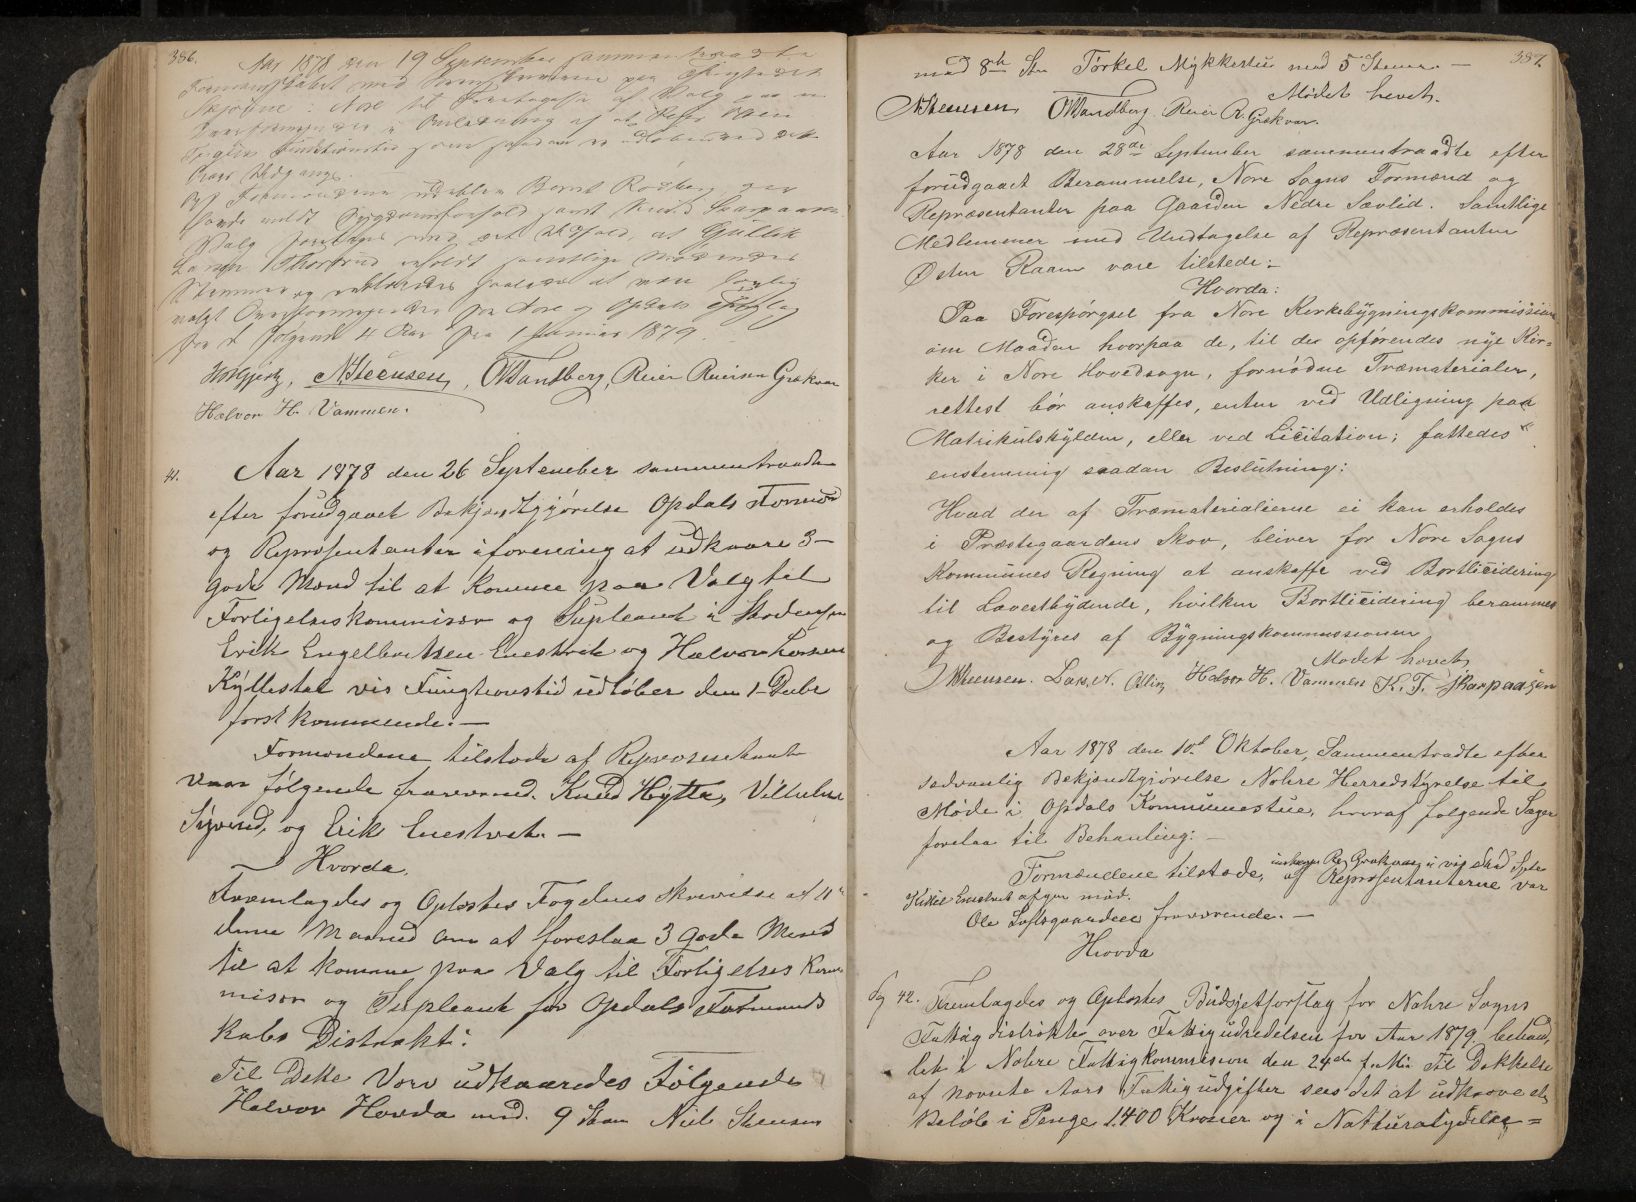 386.
Aar 1878 den 19 September sammentraadte
Formandskabet med
Skjønne i Nore til Foretagelse af Valg paa en
Overformynder i Anledning af at
Tiden er udløbet med dette
Aars Udgang.
Af Formændene udeblev Bernt Rodberg, der
havde meldt Sygdomsforfald samt Knud Skarpaasen.
Valg foretoges med det Udfald, at Gullik
Larsen Thortrud erholdt samtlige Mødendes
Stemmer og saaledes at være lovlig
valgt Overformynder for Nore og Opdals
for de følgende 4 Aar fra 1 Januar 1879.
N. Steensen, O. Sandberg, Reier Reiersen Grøkvam
Halvor H. Vammen.
41. Aar 1878 den 26 September sammentraadte
efter forudgaaet Bekjendtgjørelse Opdals Formænd
og Repræsentanter iforening at udkaare 3
gode Mænd til at komme paa Valg til
Forligelseskommissær og Supleant i Stedet for
Erik Engelbretsen Enestvet og Halvor Larsen
Kyllestal vis Fungtionstid udløber den 1 Debr
førstkommende. —
Formændene tilstede af Repræsentant
vaar følgende fraværend. Knud Hytta, Vilhelm
og Erik Enestvet. —
Hvorda.
Fremlagdes og Oplæstes Fogdens skrivelse af 11te
denne Maaned om at foreslaa 3 gode Mænd
til at komme paa Valg til Forligelses Kom-
misær og Supleant for Opdals Formand-
kabs Distrakt:
Til Dette Værv udkaaredes Følgende
Halvor Hovda med. 9 Stem Niels Steensen
387.
med 8te St. Tørkel Mykkestue med 5 Stemr. —
Mødet hevet.
N Steensen O Sandberg. Reier R. Grøkvam.
Aar 1878 den 28de September sammentraadte efter
forudgaaet Berammelse, Nore Sogns Formænd og
Repræsentanter paa Gaarden Nedre Sævlid. Samtlige
Medlemmer med Undtagelse af Repræsentanten
Østen Raaen vare tilstede:
Hvorda:
Paa Forespørgsel fra Nore Kirkebygningskommission
om Maaden hvorpaa de, til de opførendes nye Kir-
ker i Nore Hovedsogn, fornødne Træmaterialer,
rettest bør anskaffes, enten ved Udligning paa
Matrikulskylden, eller ved Licitation; fattedes
enstemmig saadan Beslutning:
Hvad der af Træmaterialierne ei kan erholdes
i Præstegaardens Skov, bliver for Nore Sogns
Kommunes Regning at anskaffe ved Bortlicidering
til Lavestbydende, hvilken Bortlicidering berammes
og Bestyres af Bygningskommissionen
Mødet hævet
N Steensen. Lars. N. Halvor H. Vammen K. T. Skarpaasen
Aar 1878 den 10d Oktober, Sammentradte efter
sædvanlig Bekjendtgjørelse Nohre Herredstyrelse til
Møde i Opdals Kommunestue, hvoraf følgende Sager
forelaa til Behanling: —
Formændene tilstede, af Repræsentanterne var
Kittil Enestvet afgav mød.
Ole Loftsgaarden fraværende. —
Hvorda
Sg 42. Fremlagdes og Oplæstes Budsjetforslag for Nohre Sogns
Fattigdistrikt over Fattigudredelsen for Aar 1879. behand-
let i Nohre Fattigkommission den 24de f.m. Til Dekkelse
af nævnte Aars Fattigudgifter sees det at udkræve et
Beløb i Penge 1.400 Kroner og i Naturalydelse =